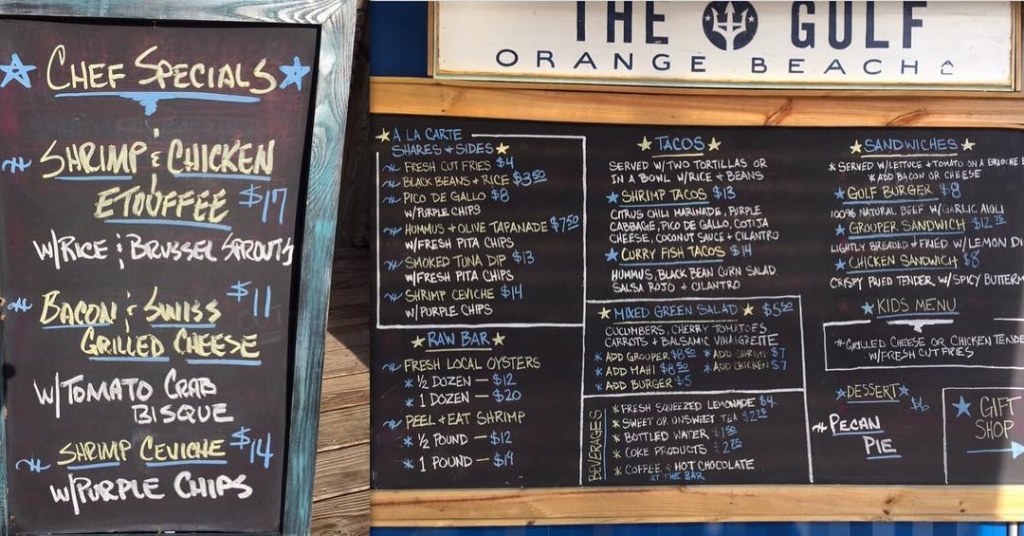 CHEF SPECIALS
SHRIMP & CHICKEN
ETOUFFEE $17
W/RICE & BRUSSEL SPROUTS
BACON & SWISS $11
GRILLED CHEESE
W/TOMATO CRAB
BISQUE
SHRIMP CEVICHE $14
W/PURPLE CHIPS
THE GULF
ORANGE BEACH
A LA CARTE
SHARES + SIDES
FRESH CUT FRIES $4
BLACK BEANS + RICE $3.50
PICO DE GALLO $8
W/PURPLE CHIPS
HUMMUS + OLIVE TAPANADE $7.50
W/FRESH PITA CHIPS
SMOKED TUNA DIP $13
W/FRESH PITA CHIPS
SHRIMP CEVICHE $14
W/ PURPLE CHIPS
RAW BAR
FRESH LOCAL OYSTERS
* 1/2 DOZEN — $12
* 1 DOZEN — $20
PEEL + EAT SHRIMP
* 1/2 POUND — $12
* 1 POUND — $19
TACOS
SERVED W/TWO TORTILLAS OR
IN A BOWL W/RICE + BEANS
SHRIMP TACOS $13
CITRUS CHILI MARINADE, PURPLE
CABBAGE, PICO DE GALLO, COTIJA
CHEESE, COCONUT SAUCE + CILANTRO
CURRY FISH TACOS $14
HUMMUS, BLACK BEAN CORN SALAD
SALSA ROJO + CILANTRO
MIXED GREEN SALAD $5.50
CUCUMBERS, CHERRY TOMATOES
CARROTS + BALSAMIC VINAIGRETTE
* ADD GROUPER $8.50 * ADD SHRIMP $7
* ADD MAHI $8.50 * ADD CHICKEN $7
* ADD BURGER $5
BEVERAGES
* FRESH SQUEEZED LEMONADE $4
* SWEET OR UNSWEET TEA $2.75
* BOTTLED WATER $1.50
* COKE PRODUCTS $2.75
* COFFEE + HOT CHOCOLATE
AT THE BAR
SANDWICHES
* SERVED W/LETTUCE + TOMATO ON A BRIOCHE
* ADD BACON OR CHEESE
GULF BURGER $8
100% NATURAL BEEF W/GARLIC AIOLI
GROUPER SANDWICH $12.75
LIGHTLY BREADED + FRIED W/LEMON
CHICKEN SANDWICH $8
CRISPY FRIED TENDER W/SPICY BUTTERM
KIDS MENU
* GRILLED CHEESE OR CHICKEN TENDE
W/FRESH CUT FRIES
DESSERT
PECAN
PIE
GIFT
SHOP